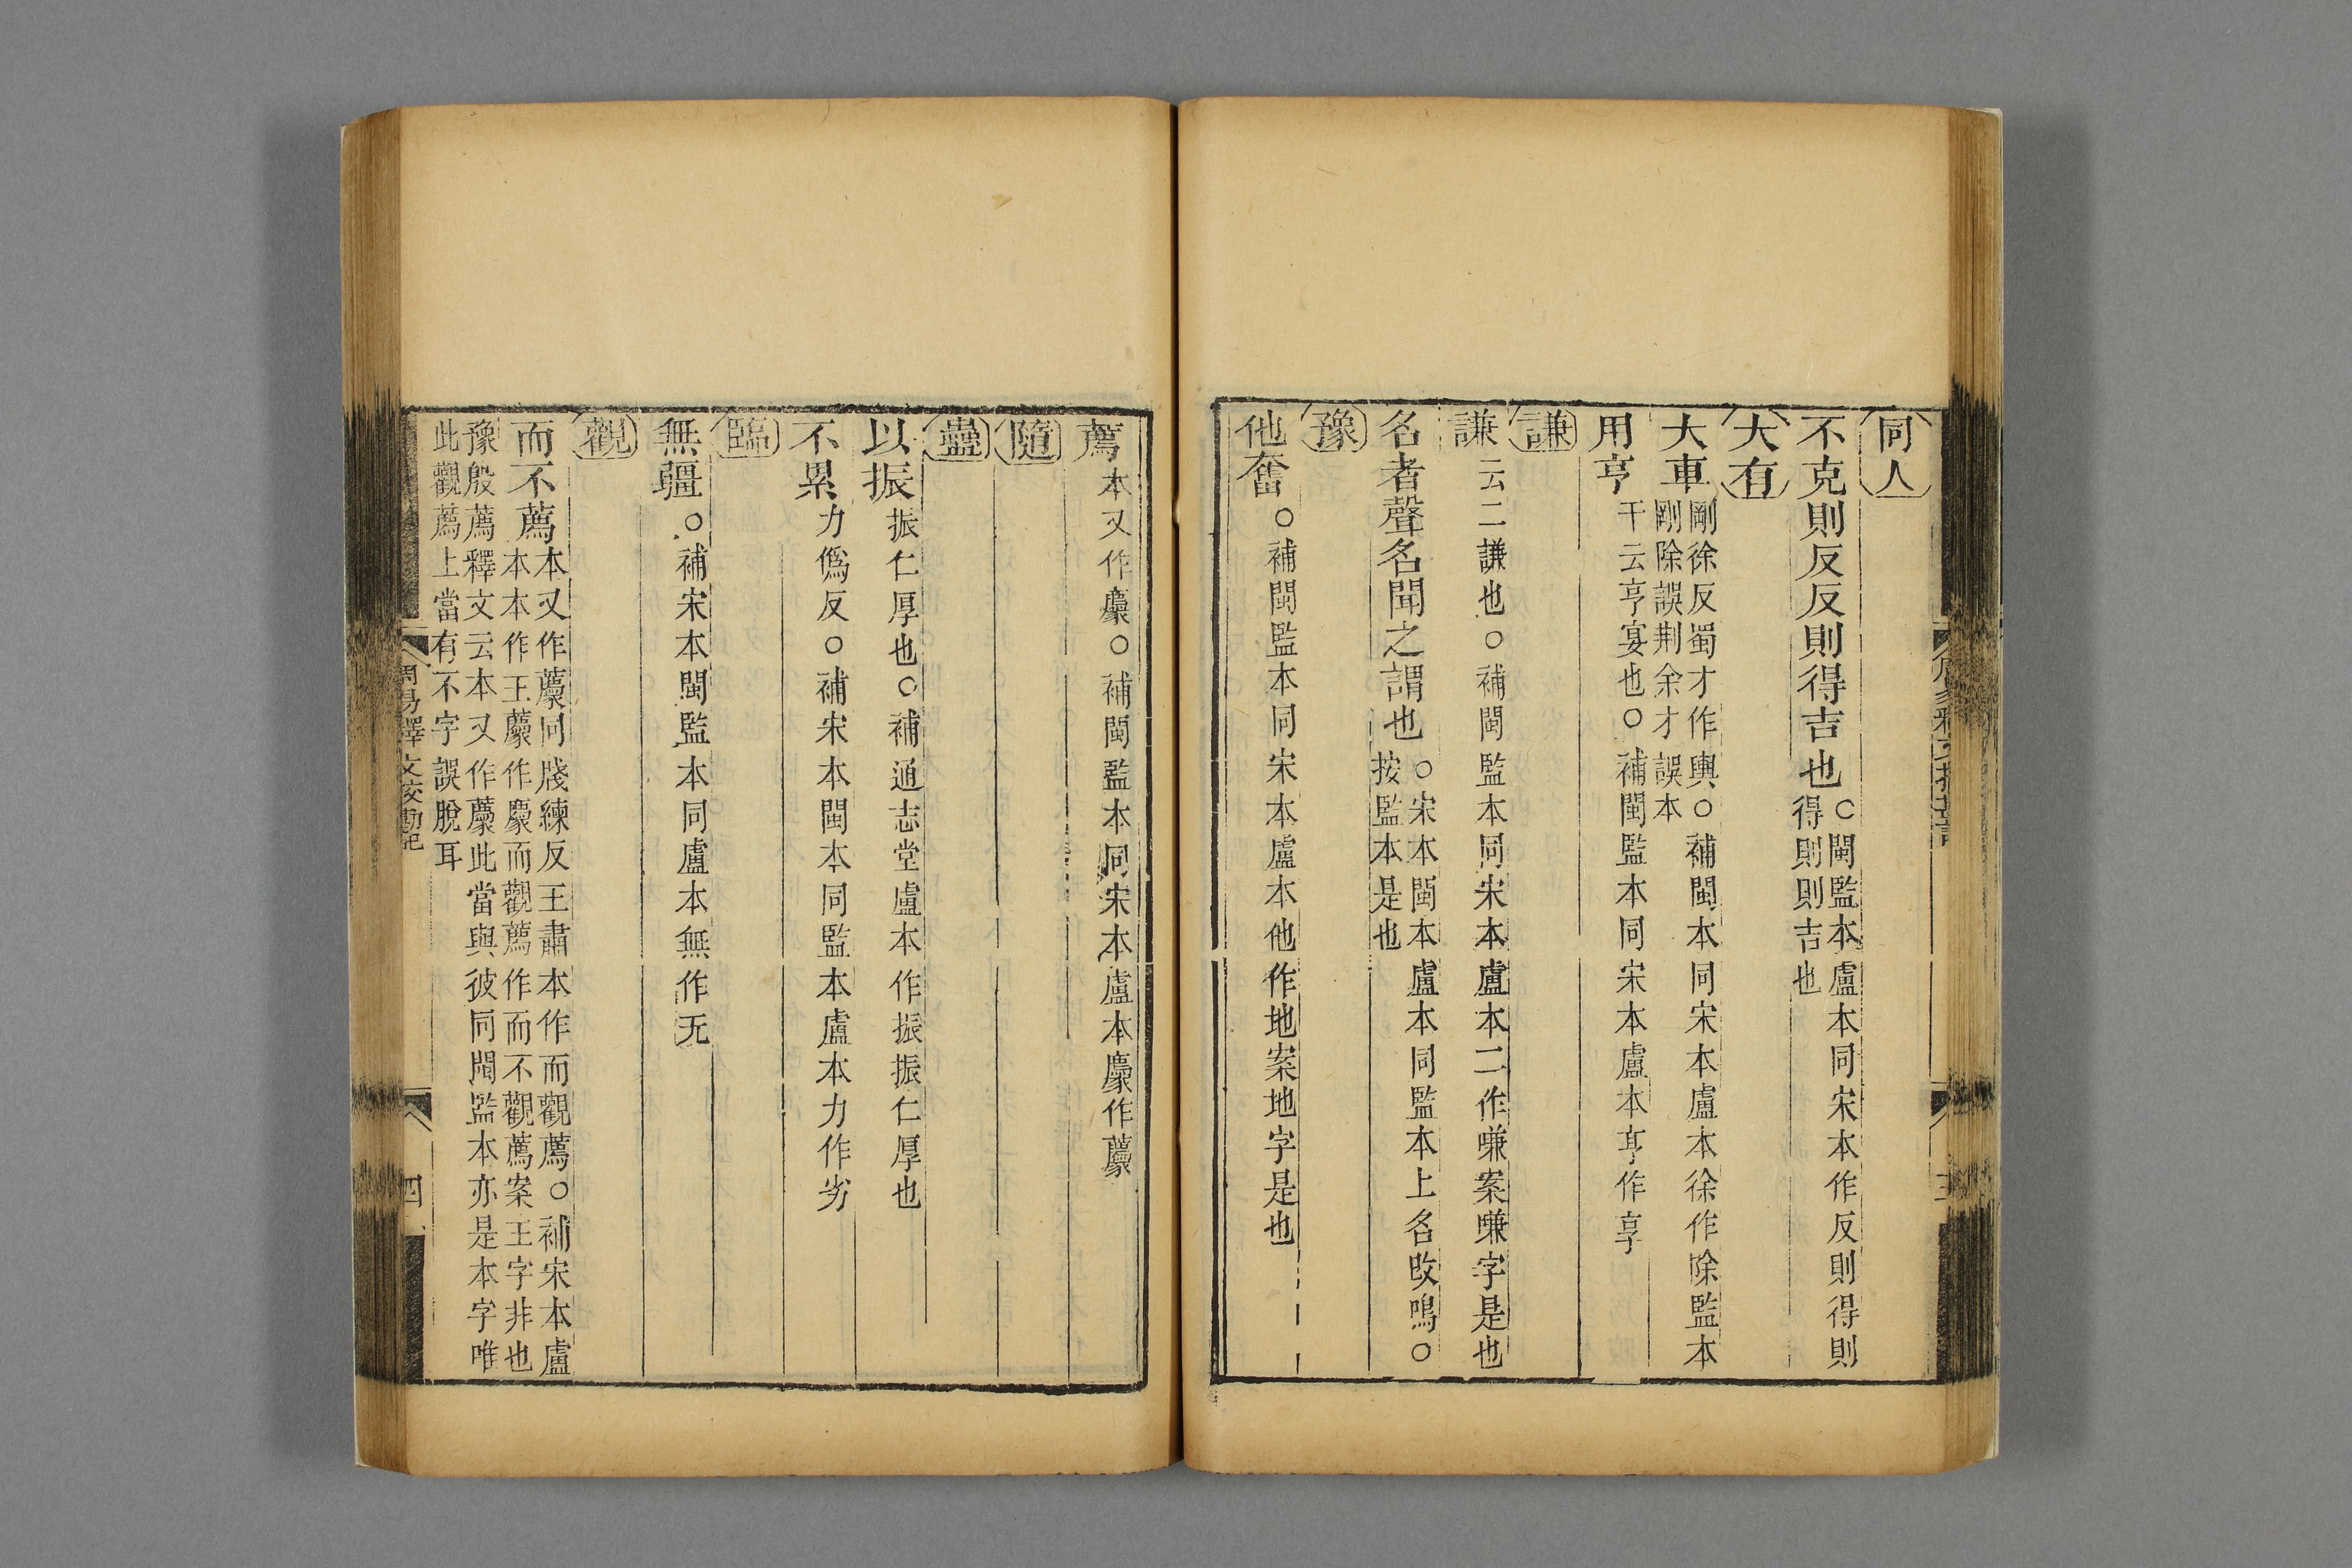 同人
不克則反反則得吉也○閩監本盧本同宋本作反則得則
得則則吉也
大有
大車剛徐反蜀才作輿○補閩本同宋本盧本徐作除監本
剛除誤荆余才誤本
用亨干云亨宴也○補閩監本同宋本盧本亨作享
謙
謙云二謙也○補閩監本同宋本盧本二作嗛案嗛字是也
名者聲名聞之謂也○宋本閩本盧本同監本上名改鳴○
按監本是也
豫
他奮○補閩監本同宋本盧本他作地案地字是也
薦本又作𢊁○補閩監本同宋本盧本𢊁作藨
隨
蠱
以振振仁厚也○補通志堂盧本作振振仁厚也
不累力僞反○補宋本閩本同監本盧本力作劣
臨
無疆○補宋本閩監本同盧本無作无
觀
而不薦本又作藨同牋練反王肅本作而觀薦○補宋本盧
本本作王藨作𢊁而觀薦作而不觀薦案王字非也
豫殷薦釋文云本又作藨此當與彼同閩監本亦是本字唯
此觀薦上當有不字誤脫耳
周易釋文校勘記
四